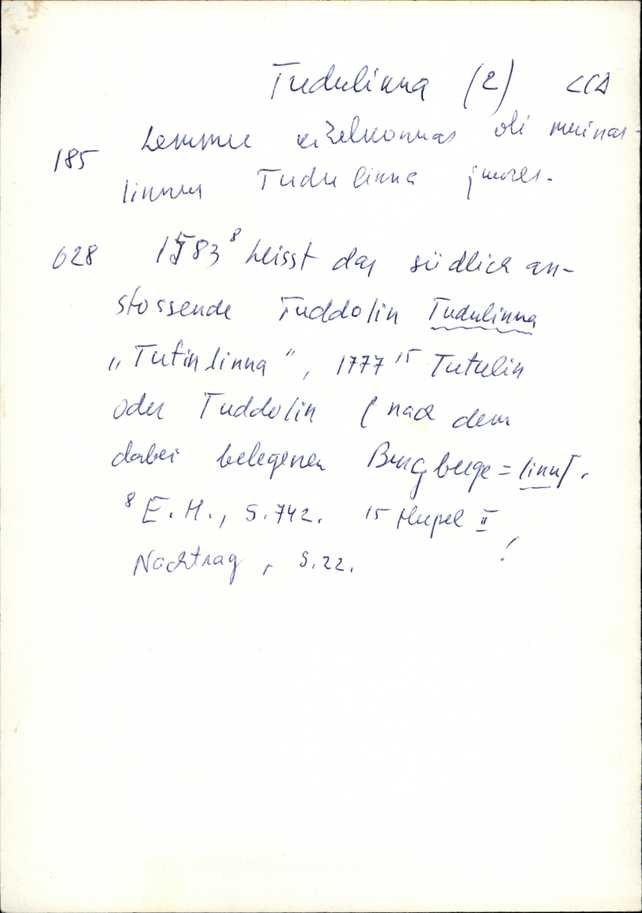 Tudulinna (2)
185 Lemmu kihelkonnas oli muinas-
linnus Tudulinna juures.
628 1583⁸ heisst das südlich an-
stossende Tuddolin Tudulinna
„Tutinlinna“, 1777¹⁵ Tutulin
oder Tuddolin (nach dem
dabei belegenen Burgberge = linn).
⁸ E.H., S.742. ¹⁵ Hupel II
Nachtrag, S.22. !